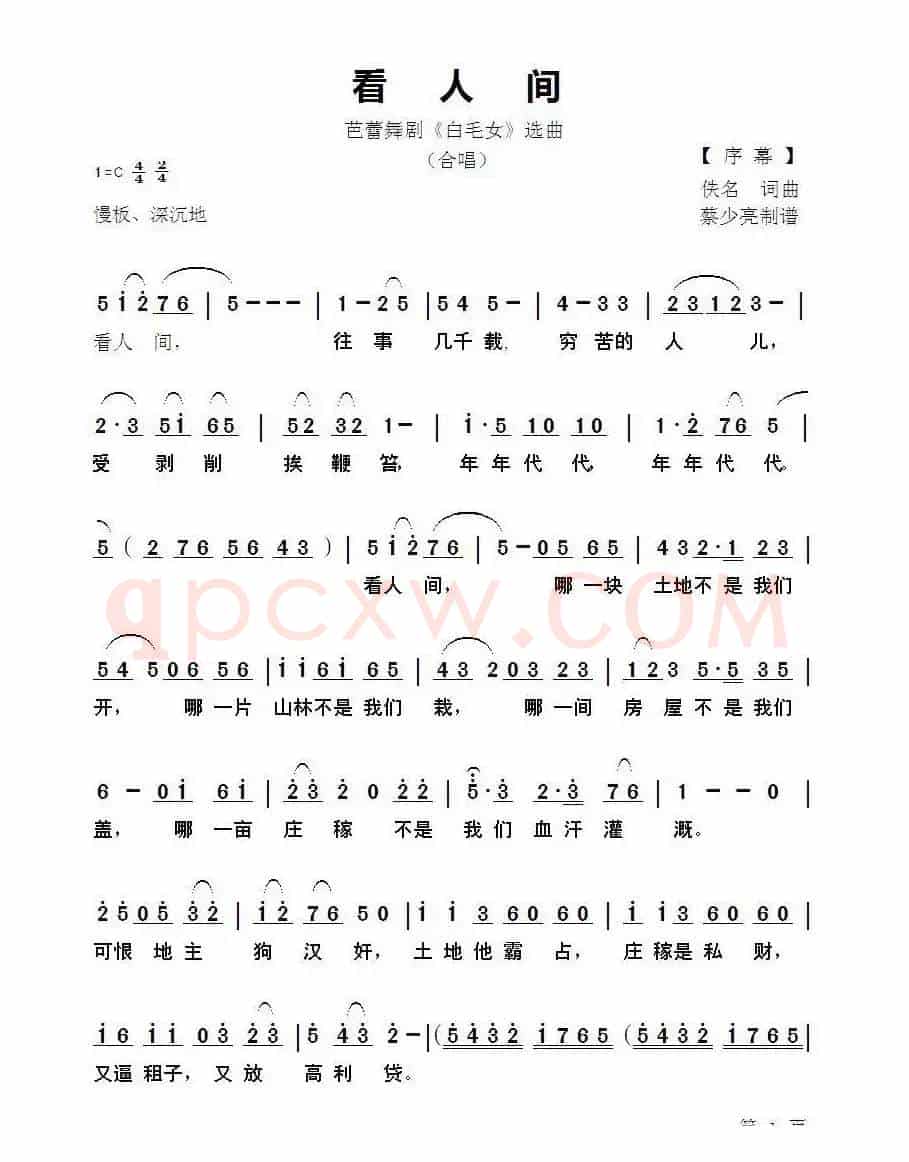 看 人 间
芭蕾舞剧《白毛女》选曲
（合唱）
【 序 幕 】
1=C 4/4 2/4
佚名 词曲
慢板、深沉地
蔡少亮制谱
5 i 2 7 6 | 5 - - - | 1 - 2 5 | 5 4 5 - | 4 - 3 3 | 2 3 1 2 3 - |
看人 间， 往 事 几千 载， 穷 苦的 人 儿，
2 · 3 5 i 6 5 | 5 2 3 2 1 - | i · 5 1 0 1 0 | 1 · 2 7 6 5 |
受 剥 削 挨 鞭 笞， 年 年 代 代， 年 年 代 代。
5 （ 2 7 6 5 6 4 3 ） | 5 i 2 7 6 | 5 - 0 5 6 5 | 4 3 2 · 1 2 3 |
看人 间， 哪 一块 土地不 是 我们
qpcxw.COM
5 4 5 0 6 5 6 | i i 6 i 6 5 | 4 3 2 0 3 2 3 | 1 2 3 5 · 5 3 5 |
开， 哪 一片 山林不是 我们 栽， 哪 一间 房 屋 不 是 我们
6 - 0 i 6 i | 2 3 2 0 2 2 | 5 · 3 2 · 3 7 6 | 1 - - 0 |
盖， 哪 一亩 庄 稼 不是 我 们 血 汗 灌 溉。
2 5 0 5 3 2 | i 2 7 6 5 0 | i i 3 6 0 6 0 | i i 3 6 0 6 0 |
可恨 地 主 狗 汉 奸， 土 地 他 霸 占， 庄 稼是 私 财，
i 6 i i 0 3 2 3 | 5 4 3 2 - | （5 4 3 2 i 7 6 5 （5 4 3 2 i 7 6 5 |
又逼 租子， 又 放 高 利 贷。